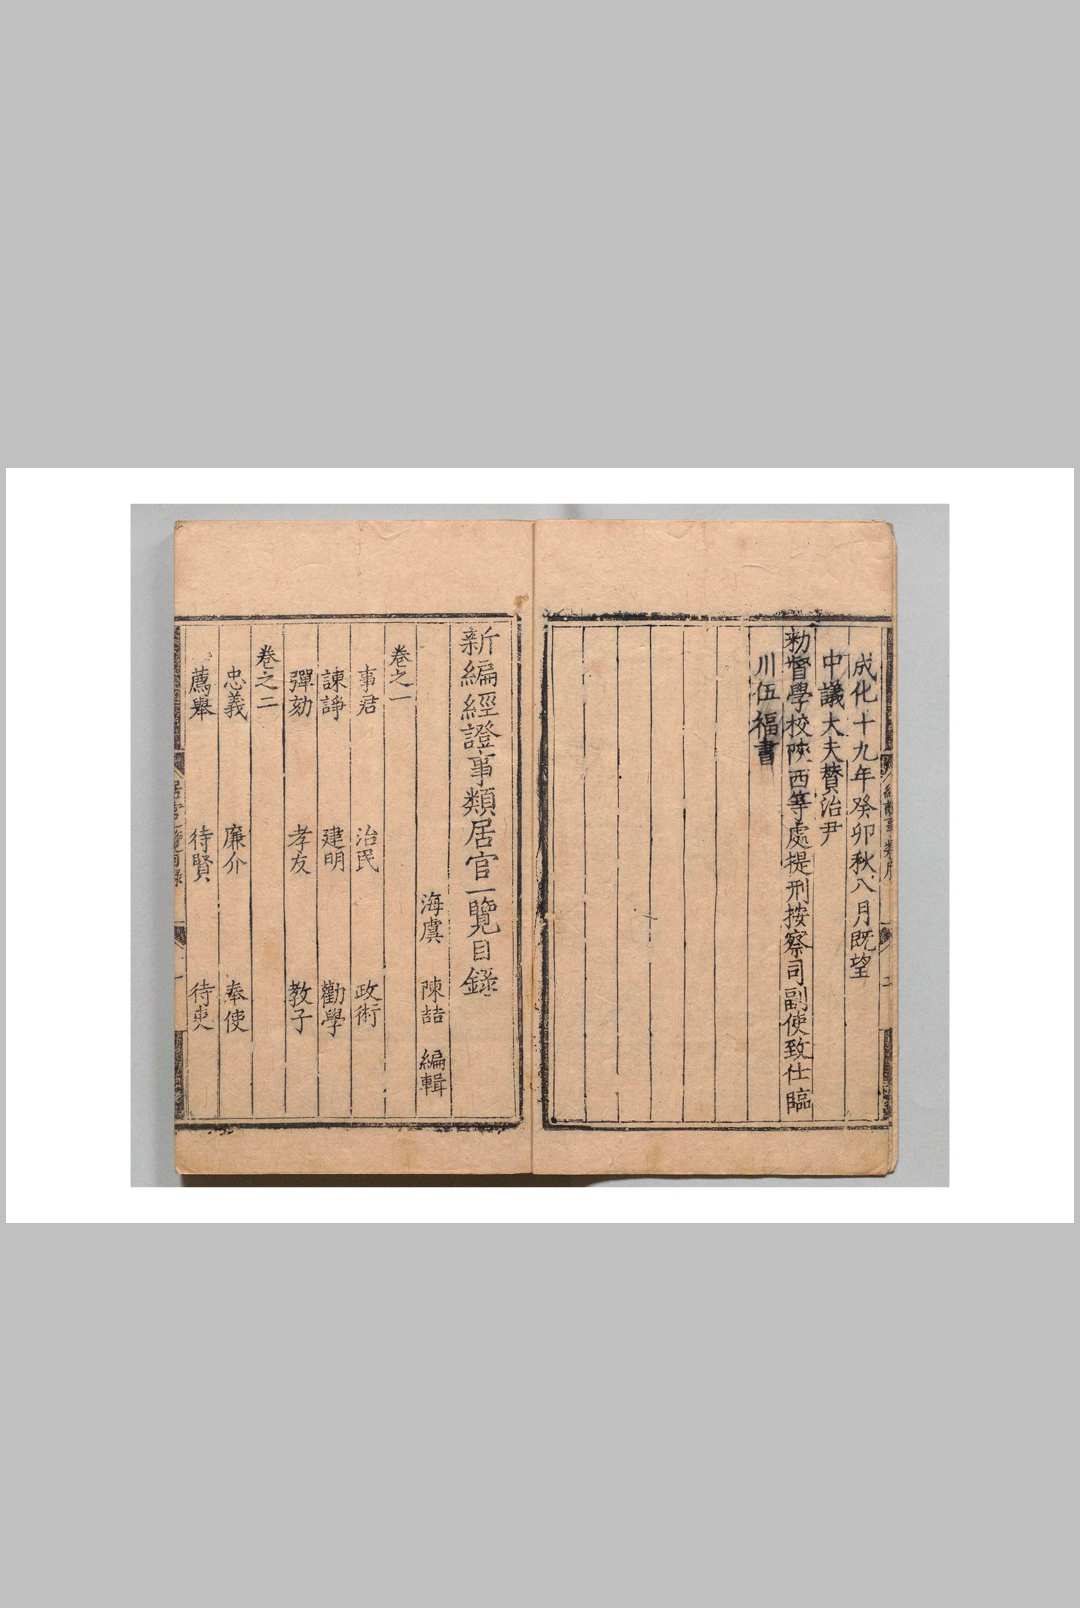 成化十九年癸卯秋八月既望
中議大夫贊治尹
勑督學校陝西等處提刑按察司副使致仕臨
川伍福書
新編經證事類居官一覽目錄
海虞 陳喆 編輯
卷之一
事君 治民 政術
諫諍 建明 勸學
彈劾 孝友 教子
卷之二
忠義 廉介 奉使
薦舉 待賢 待吏